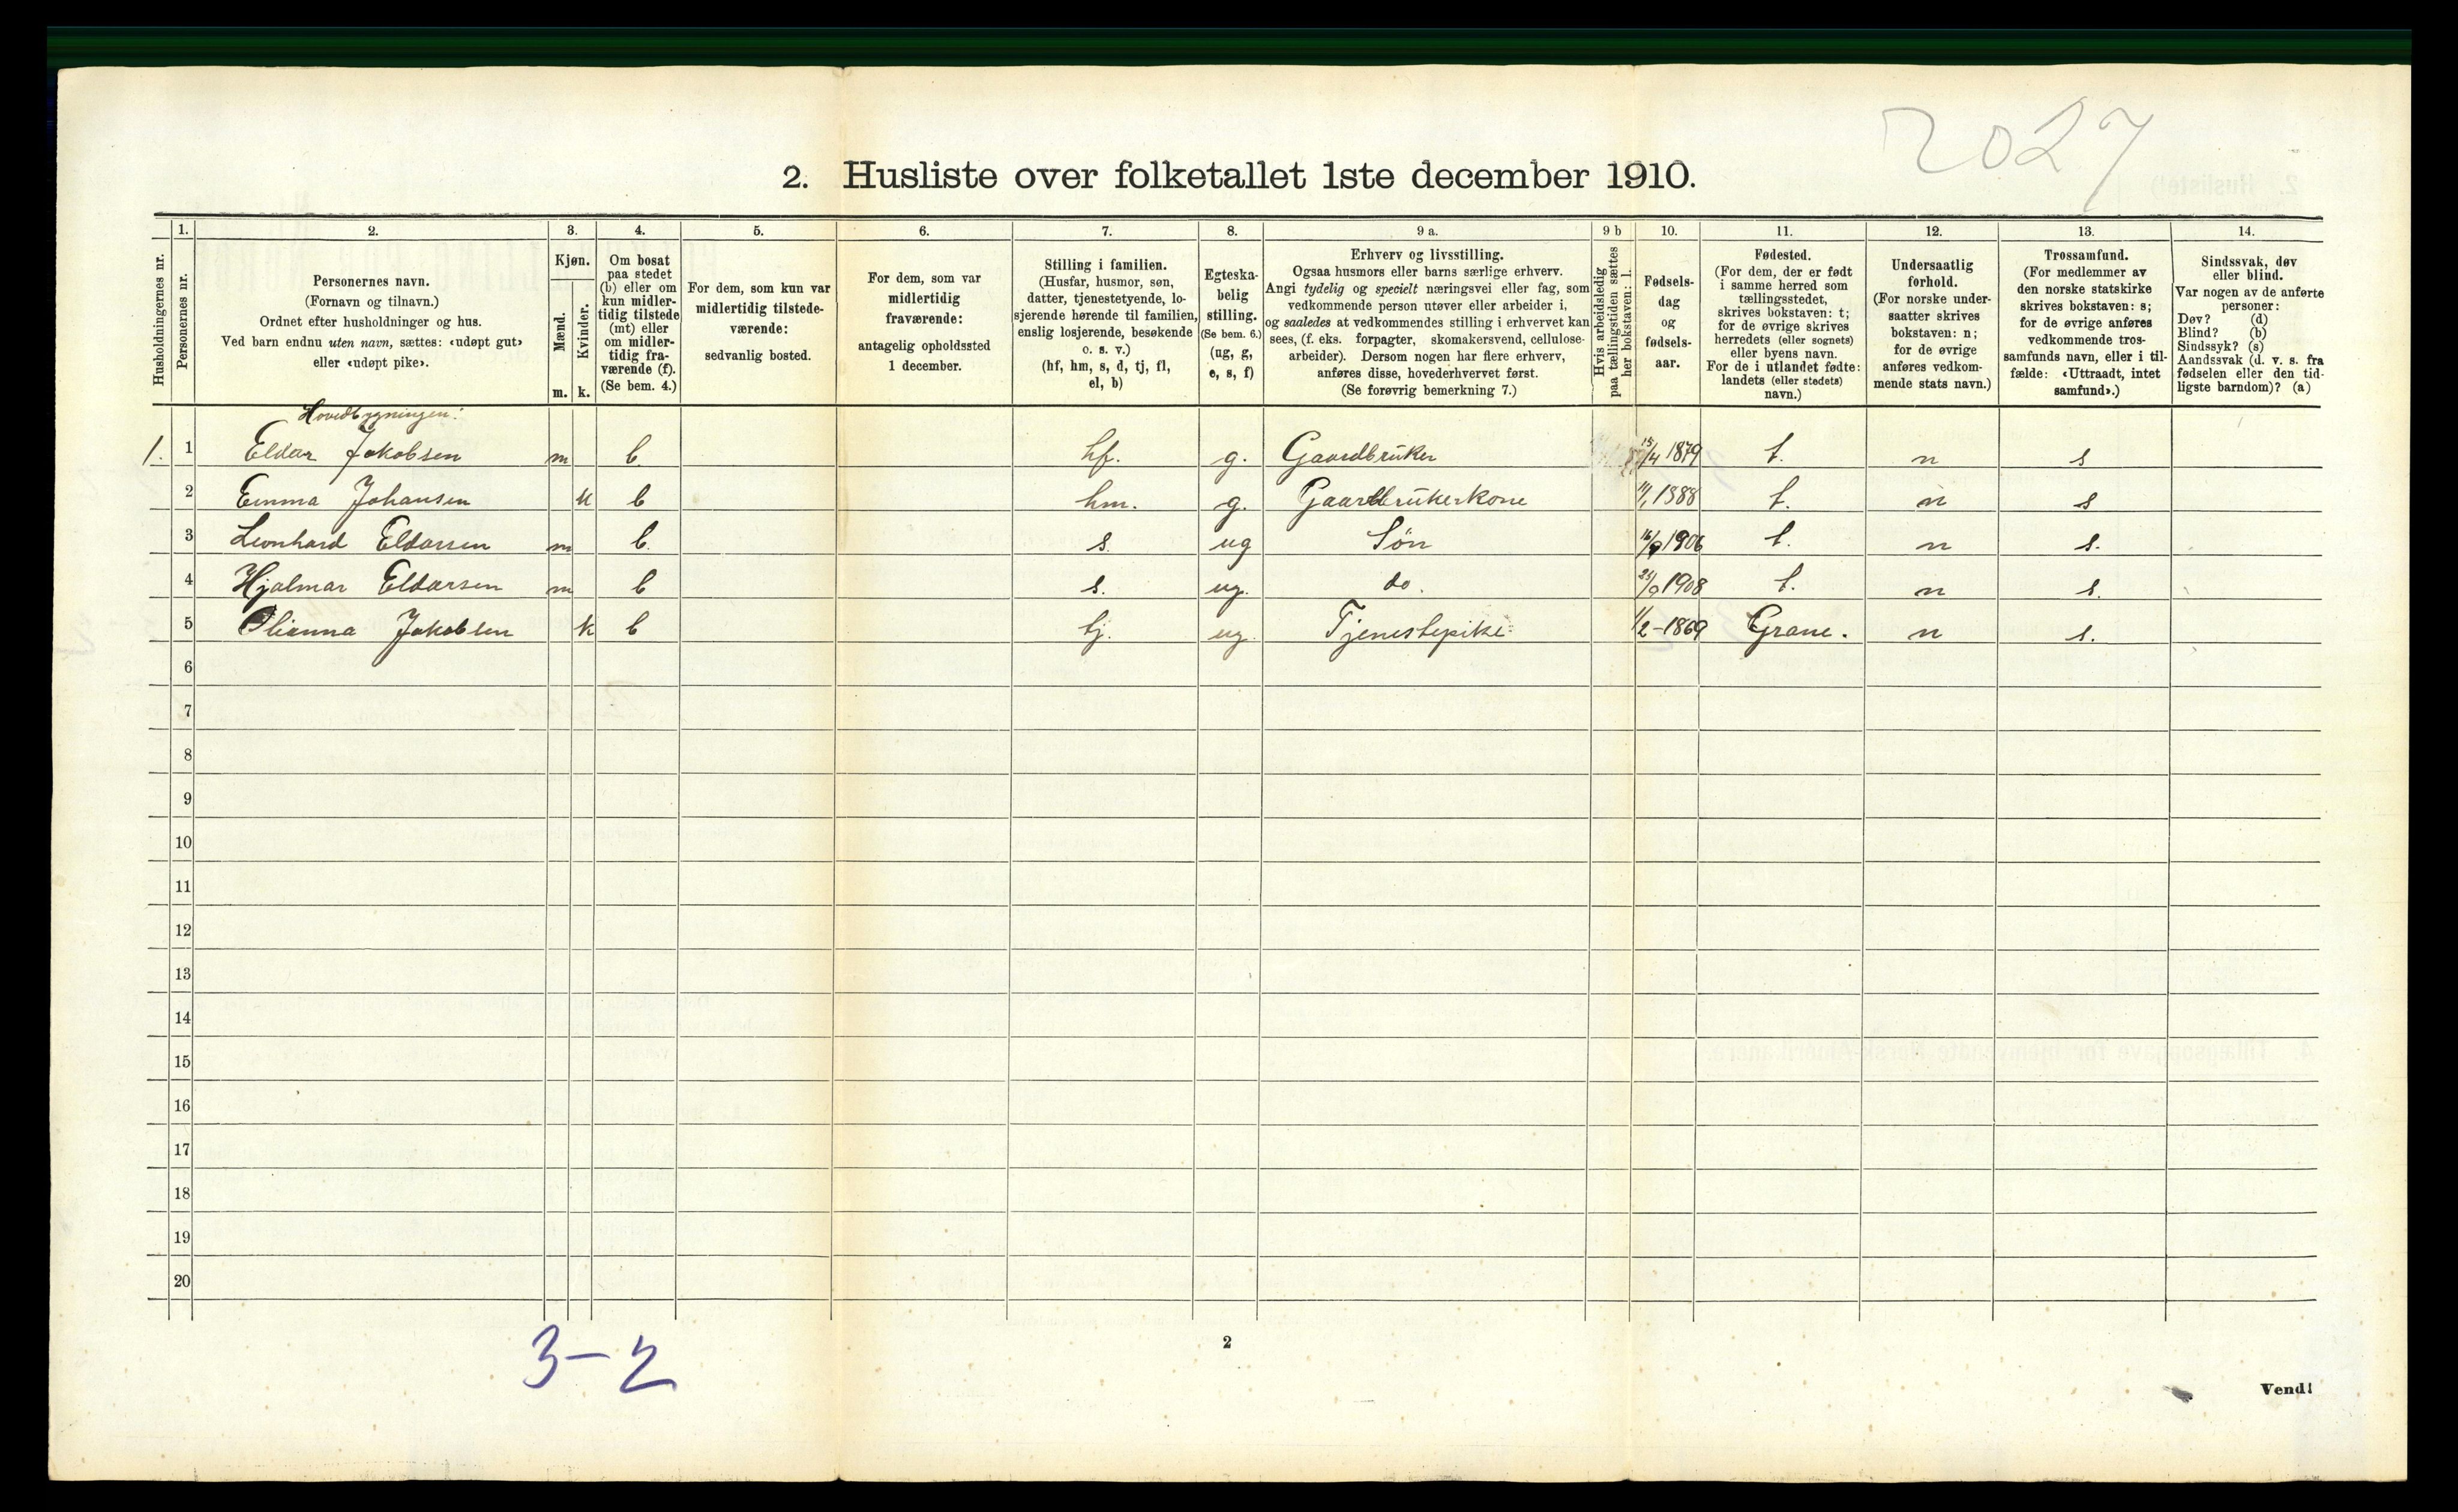 2027
2. Husliste over folketallet 1ste december 1910.
Husholdningernes nr.
1. Personernes nr.
2. Personernes navn.
(Fornavn og tilnavn.)
Ordnet efter husholdninger og hus.
Ved barn endnu uten navn, sættes: «udøpt gut»
eller «udøpt pike».
3. Kjøn.
Mænd. m.
Kvinder. k.
4. Om bosat
paa stedet
(b) eller om
kun midler-
tidig tilstede
(mt) eller
om midler-
tidig fra-
værende (f).
(Se bem. 4.)
5. For dem, som kun var
midlertidig tilstede-
værende:
sedvanlig bosted.
6. For dem, som var
midlertidig
fraværende:
antagelig opholdssted
1 december.
7. Stilling i familien.
(Husfar, husmor, søn,
datter, tjenestetyende, lo-
sjerende hørende til familien,
enslig losjerende, besøkende
o. s. v.)
(hf, hm, s, d, tj, fl,
el, b)
8. Egteska-
belig
stilling.
(Se bem. 6.)
(ug, g,
e, s, f)
9 a. Erhverv og livsstilling.
Ogsaa husmors eller barns særlige erhverv.
Angi tydelig og specielt næringsvei eller fag, som
vedkommende person utøver eller arbeider i,
og saaledes at vedkommendes stilling i erhvervet kan
sees, (f. eks. forpagter, skomakersvend, cellulose-
arbeider). Dersom nogen har flere erhverv,
anføres disse, hovederhvervet først.
(Se forøvrig bemerkning 7.)
9 b Hvis arbeidsledig
paa tællingstiden sættes
her bokstaven: l.
10. Fødsels-
dag
og
fødsels-
aar.
11. Fødested.
(For dem, der er født
i samme herred som
tællingsstedet,
skrives bokstaven: t;
for de øvrige skrives
herredets (eller sognets)
eller byens navn.
For de i utlandet fødte:
landets (eller stedets)
navn.)
12. Undersaatlig
forhold.
(For norske under-
saatter skrives
bokstaven: n;
for de øvrige
anføres vedkom-
mende stats navn.)
13. Trossamfund.
(For medlemmer av
den norske statskirke
skrives bokstaven: s;
for de øvrige anføres
vedkommende tros-
samfunds navn, eller i til-
fælde: «Uttraadt, intet
samfund».)
14. Sindssvak, døv
eller blind.
Var nogen av de anførte
personer:
Døv? (d)
Blind? (b)
Sindssyk? (s)
Aandssvak (d. v. s. fra
fødselen eller den tid-
ligste barndom)? (a)
Hovedbygningen:
1. 1 Eldar Jakobsen m b. hf. g. Gaardbruker 15/4 1879 t. n s
2 Emma Johansen k b hm. g. Gaardbrukerkone 1888 t. n s
3 Leonhard Eldarsen m b. s. ug Søn 16/9 1906 t. n s.
4 Hjalmar Eldarsen m b s. ug. do. 1908 t. n s.
5 Olianna Jakobsen k b tj. ug. Tjenestepike 1/2-1869 Grane. n s.
6
7
8
9
10
11
12
13
14
15
16
17
18
19
20
3-2
2
Vend!